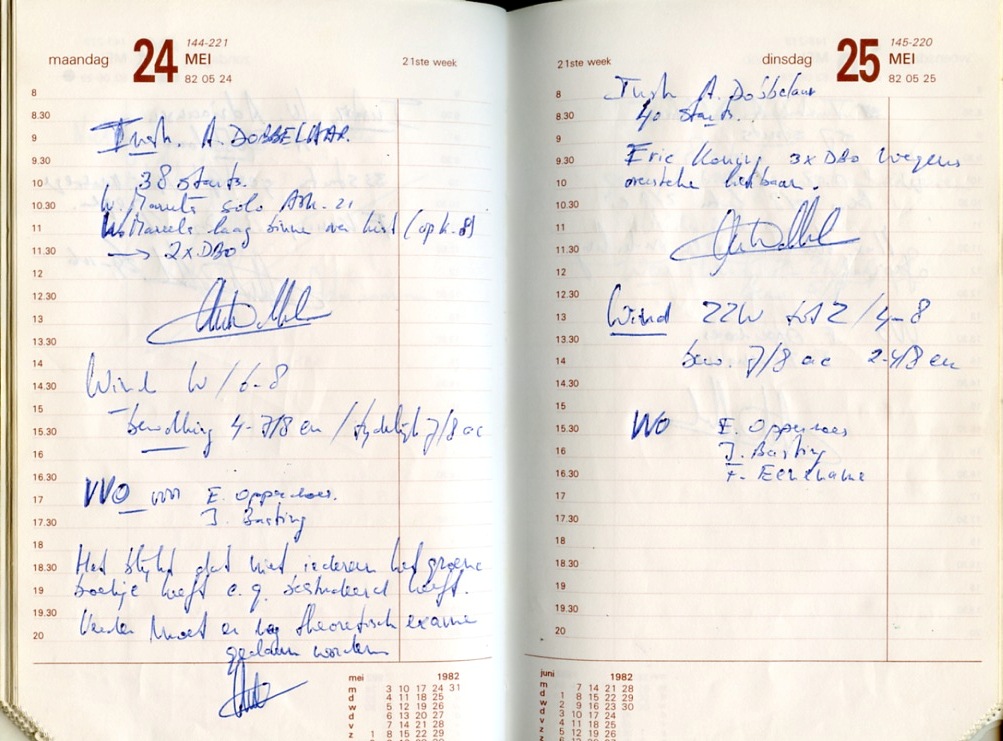 maandag 24 MEI 144-221
82 05 24
21ste week
8
8.30
9
9.30
10
10.30
11
11.30
12
12.30
13
13.30
14
14.30
15
15.30
16
16.30
17
17.30
18
18.30
19
19.30
20
Instr. A. DOBBELAAR
38 starts.
solo Ask. 21
laag binne over
→ 2x DBO
Wind W / 6-8
bewolking 4-7/8 cu / tydelijk 7/8 ac
VVO voor E. Opperdoes.
J. Basting
Het blijkt dat niet iedereen het groene
boekje heeft c.q. bestudeerd heeft.
Verder moet er nog theoretisch examen
gedaan worden
mei 1982
m 3 10 17 24 31
d 4 11 18 25
w 5 12 19 26
d 6 13 20 27
v 7 14 21 28
z 1 8 15 22 29
21ste week
dinsdag 25 MEI 145-220
82 05 25
8
8.30
9
9.30
10
10.30
11
11.30
12
12.30
13
13.30
14
14.30
15
15.30
16
16.30
17
17.30
18
18.30
19
19.30
20
Instr A. Dobbelaar
40 starts.
Eric Koning 3x DBO wegens
oversteke
Wind ZZW tot Z / 4-8
bew. 7/8 ac 2-4/8 cu
VVO E. Opperdoes
J. Basting
F.
juni 1982
m 7 14 21 28
d 1 8 15 22 29
w 2 9 16 23 30
d 3 10 17 24
v 4 11 18 25
z 5 12 19 26